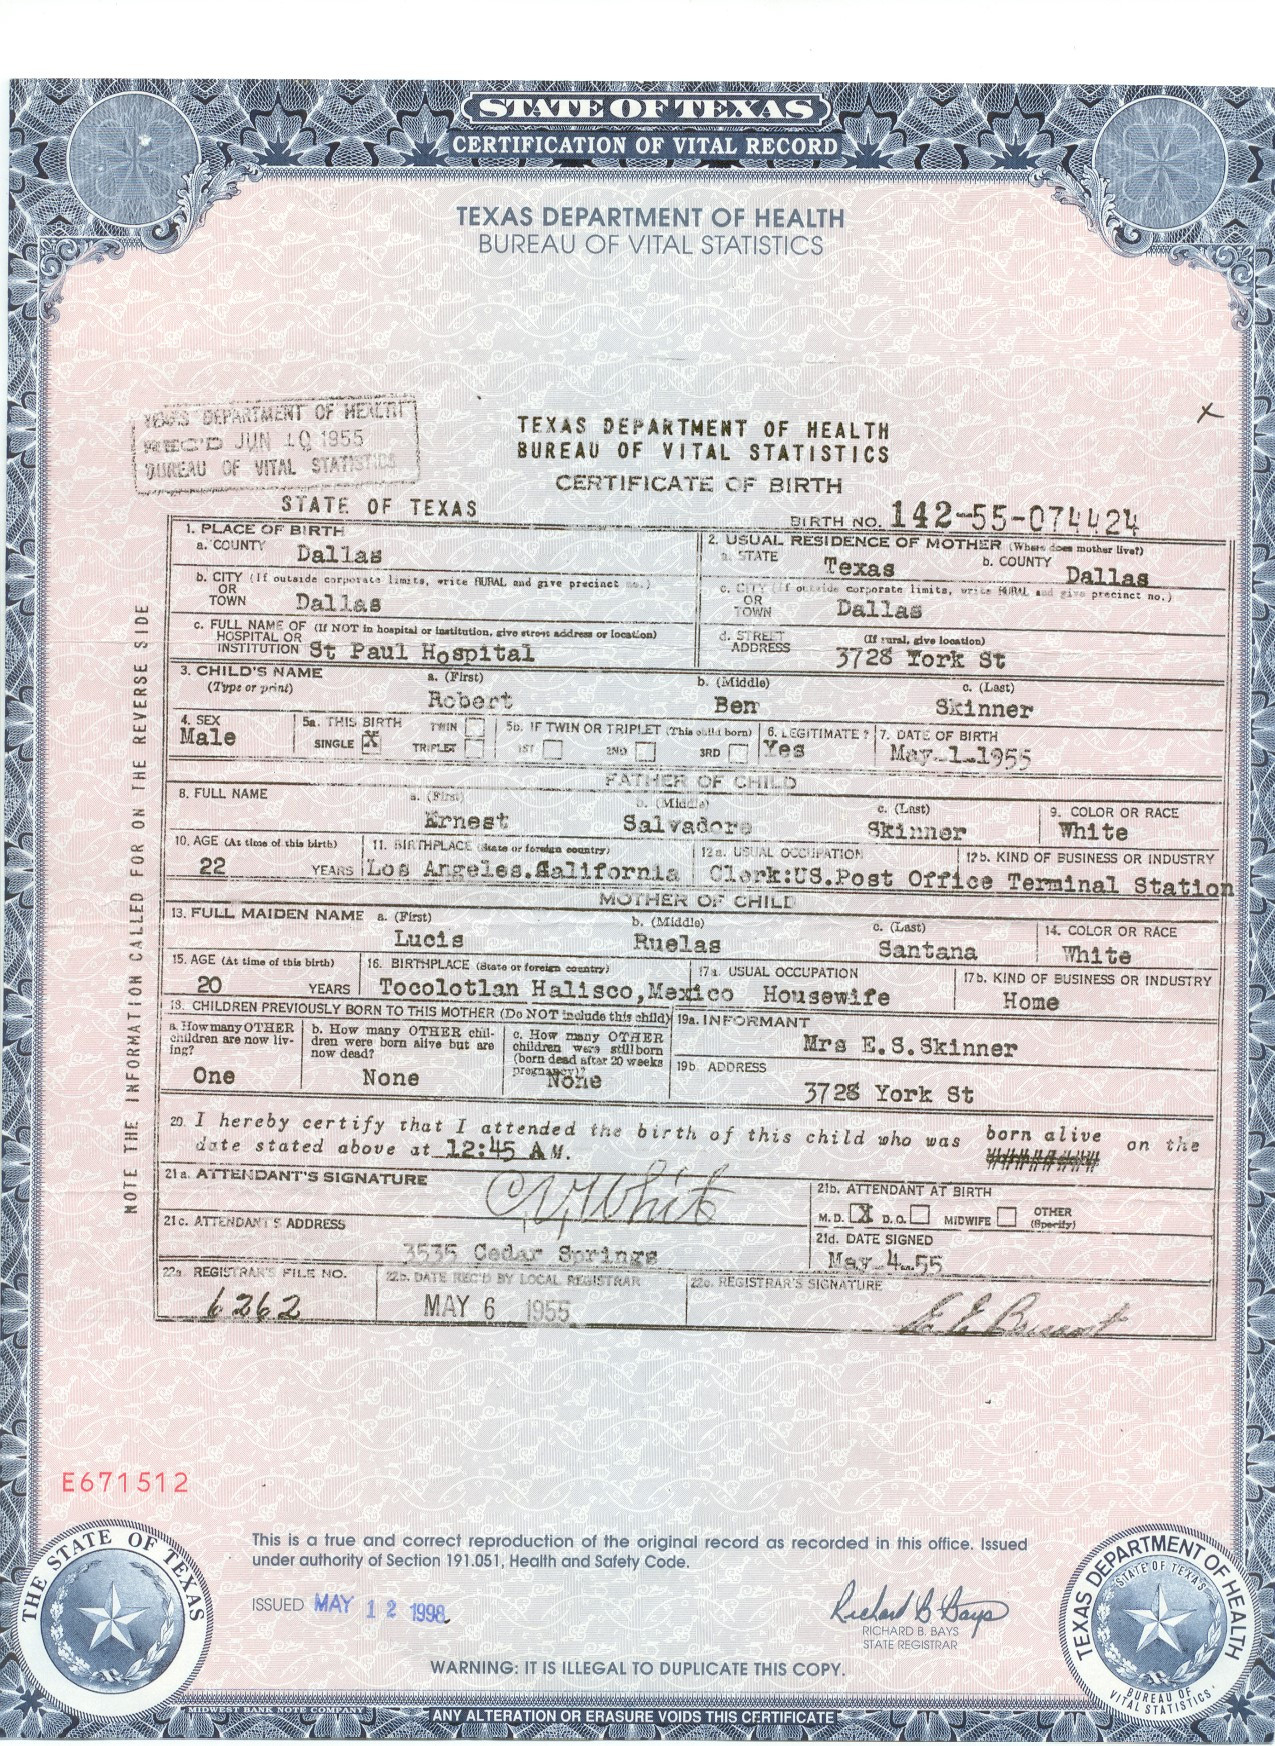 STATE OF TEXAS
CERTIFICATION OF VITAL RECORD
TEXAS DEPARTMENT OF HEALTH
BUREAU OF VITAL STATISTICS
TEXAS DEPARTMENT OF HEALTH
REC'D JUN 10 1955
BUREAU OF VITAL STATISTICS
TEXAS DEPARTMENT OF HEALTH
BUREAU OF VITAL STATISTICS
CERTIFICATE OF BIRTH
STATE OF TEXAS
BIRTH NO. 142-55-074424
1. PLACE OF BIRTH
a. COUNTY Dallas
b. CITY (If outside corporate limits, write RURAL and give precinct no.)
OR
TOWN Dallas
c. FULL NAME OF (If NOT in hospital or institution, give street address or location)
HOSPITAL OR
INSTITUTION St Paul Hospital
2. USUAL RESIDENCE OF MOTHER (Where does mother live?)
a. STATE Texas b. COUNTY Dallas
c. CITY (If outside corporate limits, write RURAL and give precinct no.)
OR
TOWN Dallas
d. STREET (If rural, give location)
ADDRESS 3728 York St
3. CHILD'S NAME a. (First) b. (Middle) c. (Last)
(Type or print) Robert Ben Skinner
4. SEX Male
5a. THIS BIRTH TWIN
SINGLE X TRIPLET
5b. IF TWIN OR TRIPLET (This child born)
1ST 2ND 3RD
6. LEGITIMATE? Yes
7. DATE OF BIRTH
May-1-1955
FATHER OF CHILD
8. FULL NAME a. (First) b. (Middle) c. (Last)
Ernest Salvadore Skinner
9. COLOR OR RACE
White
10. AGE (At time of this birth)
22 YEARS
11. BIRTHPLACE (State or foreign country)
Los Angeles.California
12a. USUAL OCCUPATION 12b. KIND OF BUSINESS OR INDUSTRY
Clerk:US.Post Office Terminal Station
MOTHER OF CHILD
13. FULL MAIDEN NAME a. (First) b. (Middle) c. (Last)
Lucis Ruelas Santana
14. COLOR OR RACE
White
15. AGE (At time of this birth)
20 YEARS
16. BIRTHPLACE (State or foreign country)
Tocolotlan Halisco,Mexico
17a. USUAL OCCUPATION
Housewife
17b. KIND OF BUSINESS OR INDUSTRY
Home
18. CHILDREN PREVIOUSLY BORN TO THIS MOTHER (Do NOT include this child)
a. How many OTHER
children are now liv-
ing?
One
b. How many OTHER chil-
dren were born alive but are
now dead?
None
c. How many OTHER
children were stillborn
(born dead after 20 weeks
pregnancy)?
None
19a. INFORMANT
Mrs E.S.Skinner
19b. ADDRESS
3728 York St
20. I hereby certify that I attended the birth of this child who was born alive on the
date stated above at 12:45 A M.
21a. ATTENDANT'S SIGNATURE
21b. ATTENDANT AT BIRTH
M.D. X D.O. MIDWIFE OTHER
(Specify)
21c. ATTENDANT'S ADDRESS
3535 Cedar Springs
21d. DATE SIGNED
May-4-55
22a. REGISTRAR'S FILE NO.
6262
22b. DATE REC'D BY LOCAL REGISTRAR
MAY 6 1955
22c. REGISTRAR'S SIGNATURE
NOTE THE INFORMATION CALLED FOR ON THE REVERSE SIDE
E671512
This is a true and correct reproduction of the original record as recorded in this office. Issued
under authority of Section 191.051, Health and Safety Code.
ISSUED MAY 12 1998
Richard B Bays
RICHARD B. BAYS
STATE REGISTRAR
WARNING: IT IS ILLEGAL TO DUPLICATE THIS COPY.
THE STATE OF TEXAS
TEXAS DEPARTMENT OF HEALTH
STATE OF TEXAS
BUREAU OF
VITAL STATISTICS
MIDWEST BANK NOTE COMPANY
ANY ALTERATION OR ERASURE VOIDS THIS CERTIFICATE